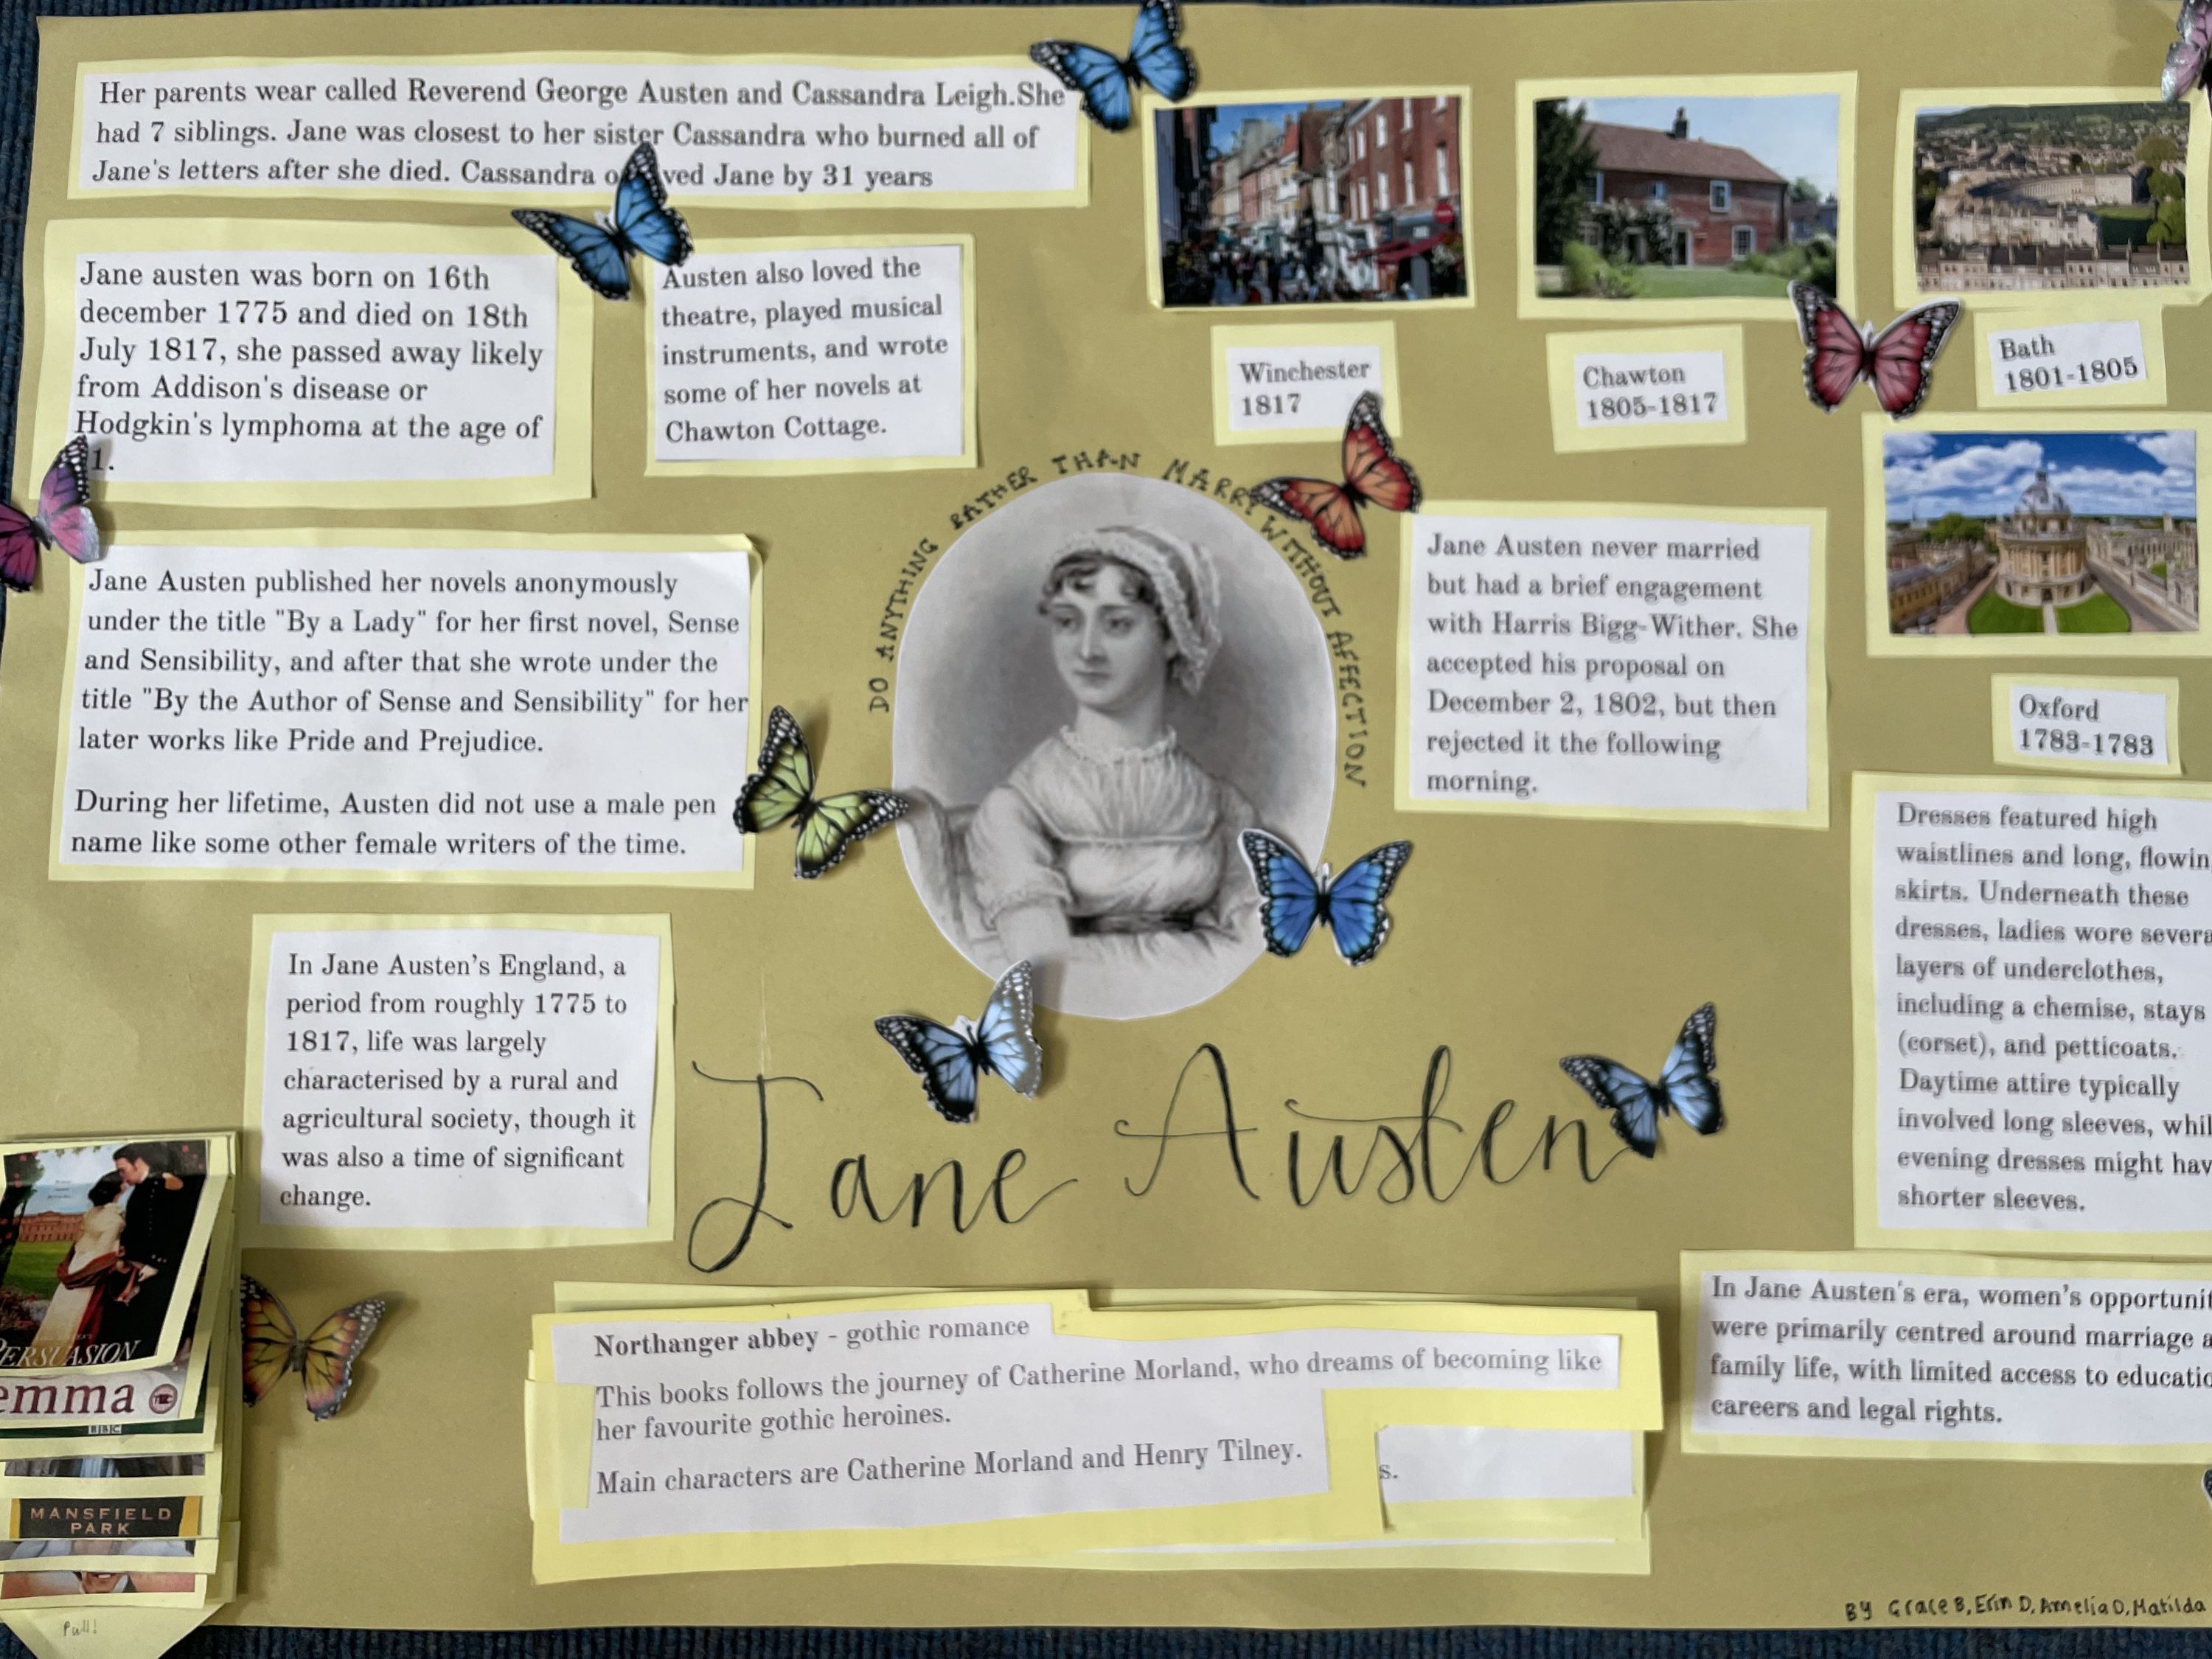 Her parents wear called Reverend George Austen and Cassandra Leigh.She
had 7 siblings. Jane was closest to her sister Cassandra who burned all of
Jane's letters after she died. Cassandra o ved Jane by 31 years
Jane austen was born on 16th
december 1775 and died on 18th
July 1817, she passed away likely
from Addison's disease or
Hodgkin's lymphoma at the age of
1.
Austen also loved the
theatre, played musical
instruments, and wrote
some of her novels at
Chawton Cottage.
Winchester
1817
Chawton
1805-1817
Bath
1801-1805
Oxford
1783-1783
Jane Austen published her novels anonymously
under the title "By a Lady" for her first novel, Sense
and Sensibility, and after that she wrote under the
title "By the Author of Sense and Sensibility" for her
later works like Pride and Prejudice.
During her lifetime, Austen did not use a male pen
name like some other female writers of the time.
DO ANYTHING RATHER THAN MARRY WITHOUT AFFECTION
Jane Austen never married
but had a brief engagement
with Harris Bigg-Wither. She
accepted his proposal on
December 2, 1802, but then
rejected it the following
morning.
Dresses featured high
waistlines and long, flowin
skirts. Underneath these
dresses, ladies wore severa
layers of underclothes,
including a chemise, stays
(corset), and petticoats.
Daytime attire typically
involved long sleeves, whil
evening dresses might hav
shorter sleeves.
In Jane Austen's England, a
period from roughly 1775 to
1817, life was largely
characterised by a rural and
agricultural society, though it
was also a time of significant
change.
Jane Austen
PERSUASION
emma
BBC
MANSFIELD
PARK
Pull!
Northanger abbey - gothic romance
This books follows the journey of Catherine Morland, who dreams of becoming like
her favourite gothic heroines.
Main characters are Catherine Morland and Henry Tilney.
s.
In Jane Austen's era, women's opportunit
were primarily centred around marriage a
family life, with limited access to educatio
careers and legal rights.
By Grace B, Erin D, Amelia D, Matilda